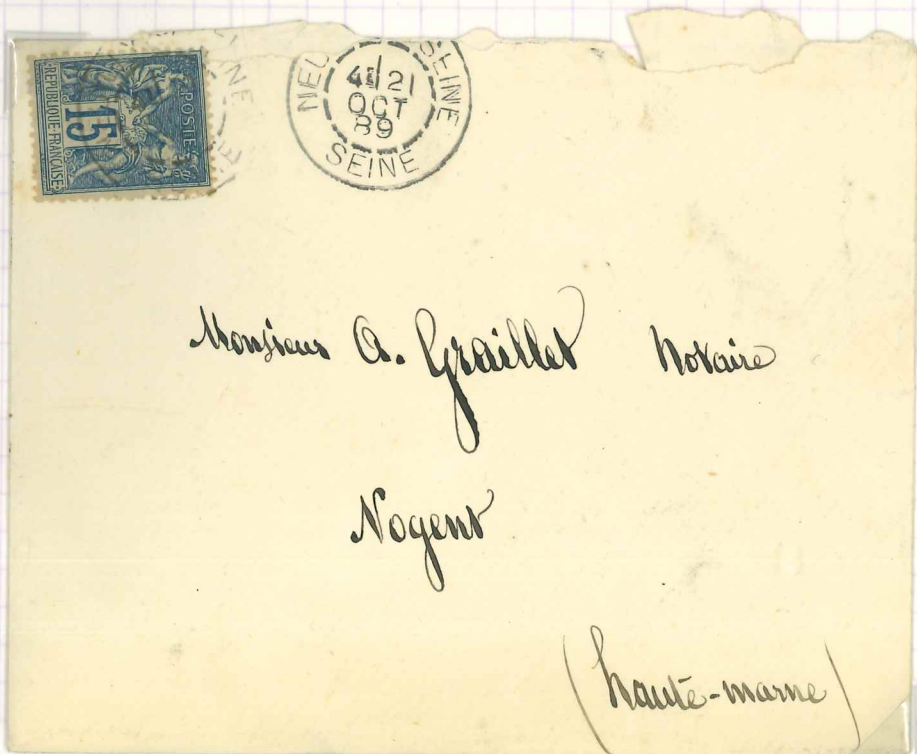 POSTES
15
REPUBLIQUE FRANÇAISE
NEU S-SEINE
4E 21
OCT
89
SEINE
Monsieur A. Graillet Notaire
Nogent
(haute-marne)